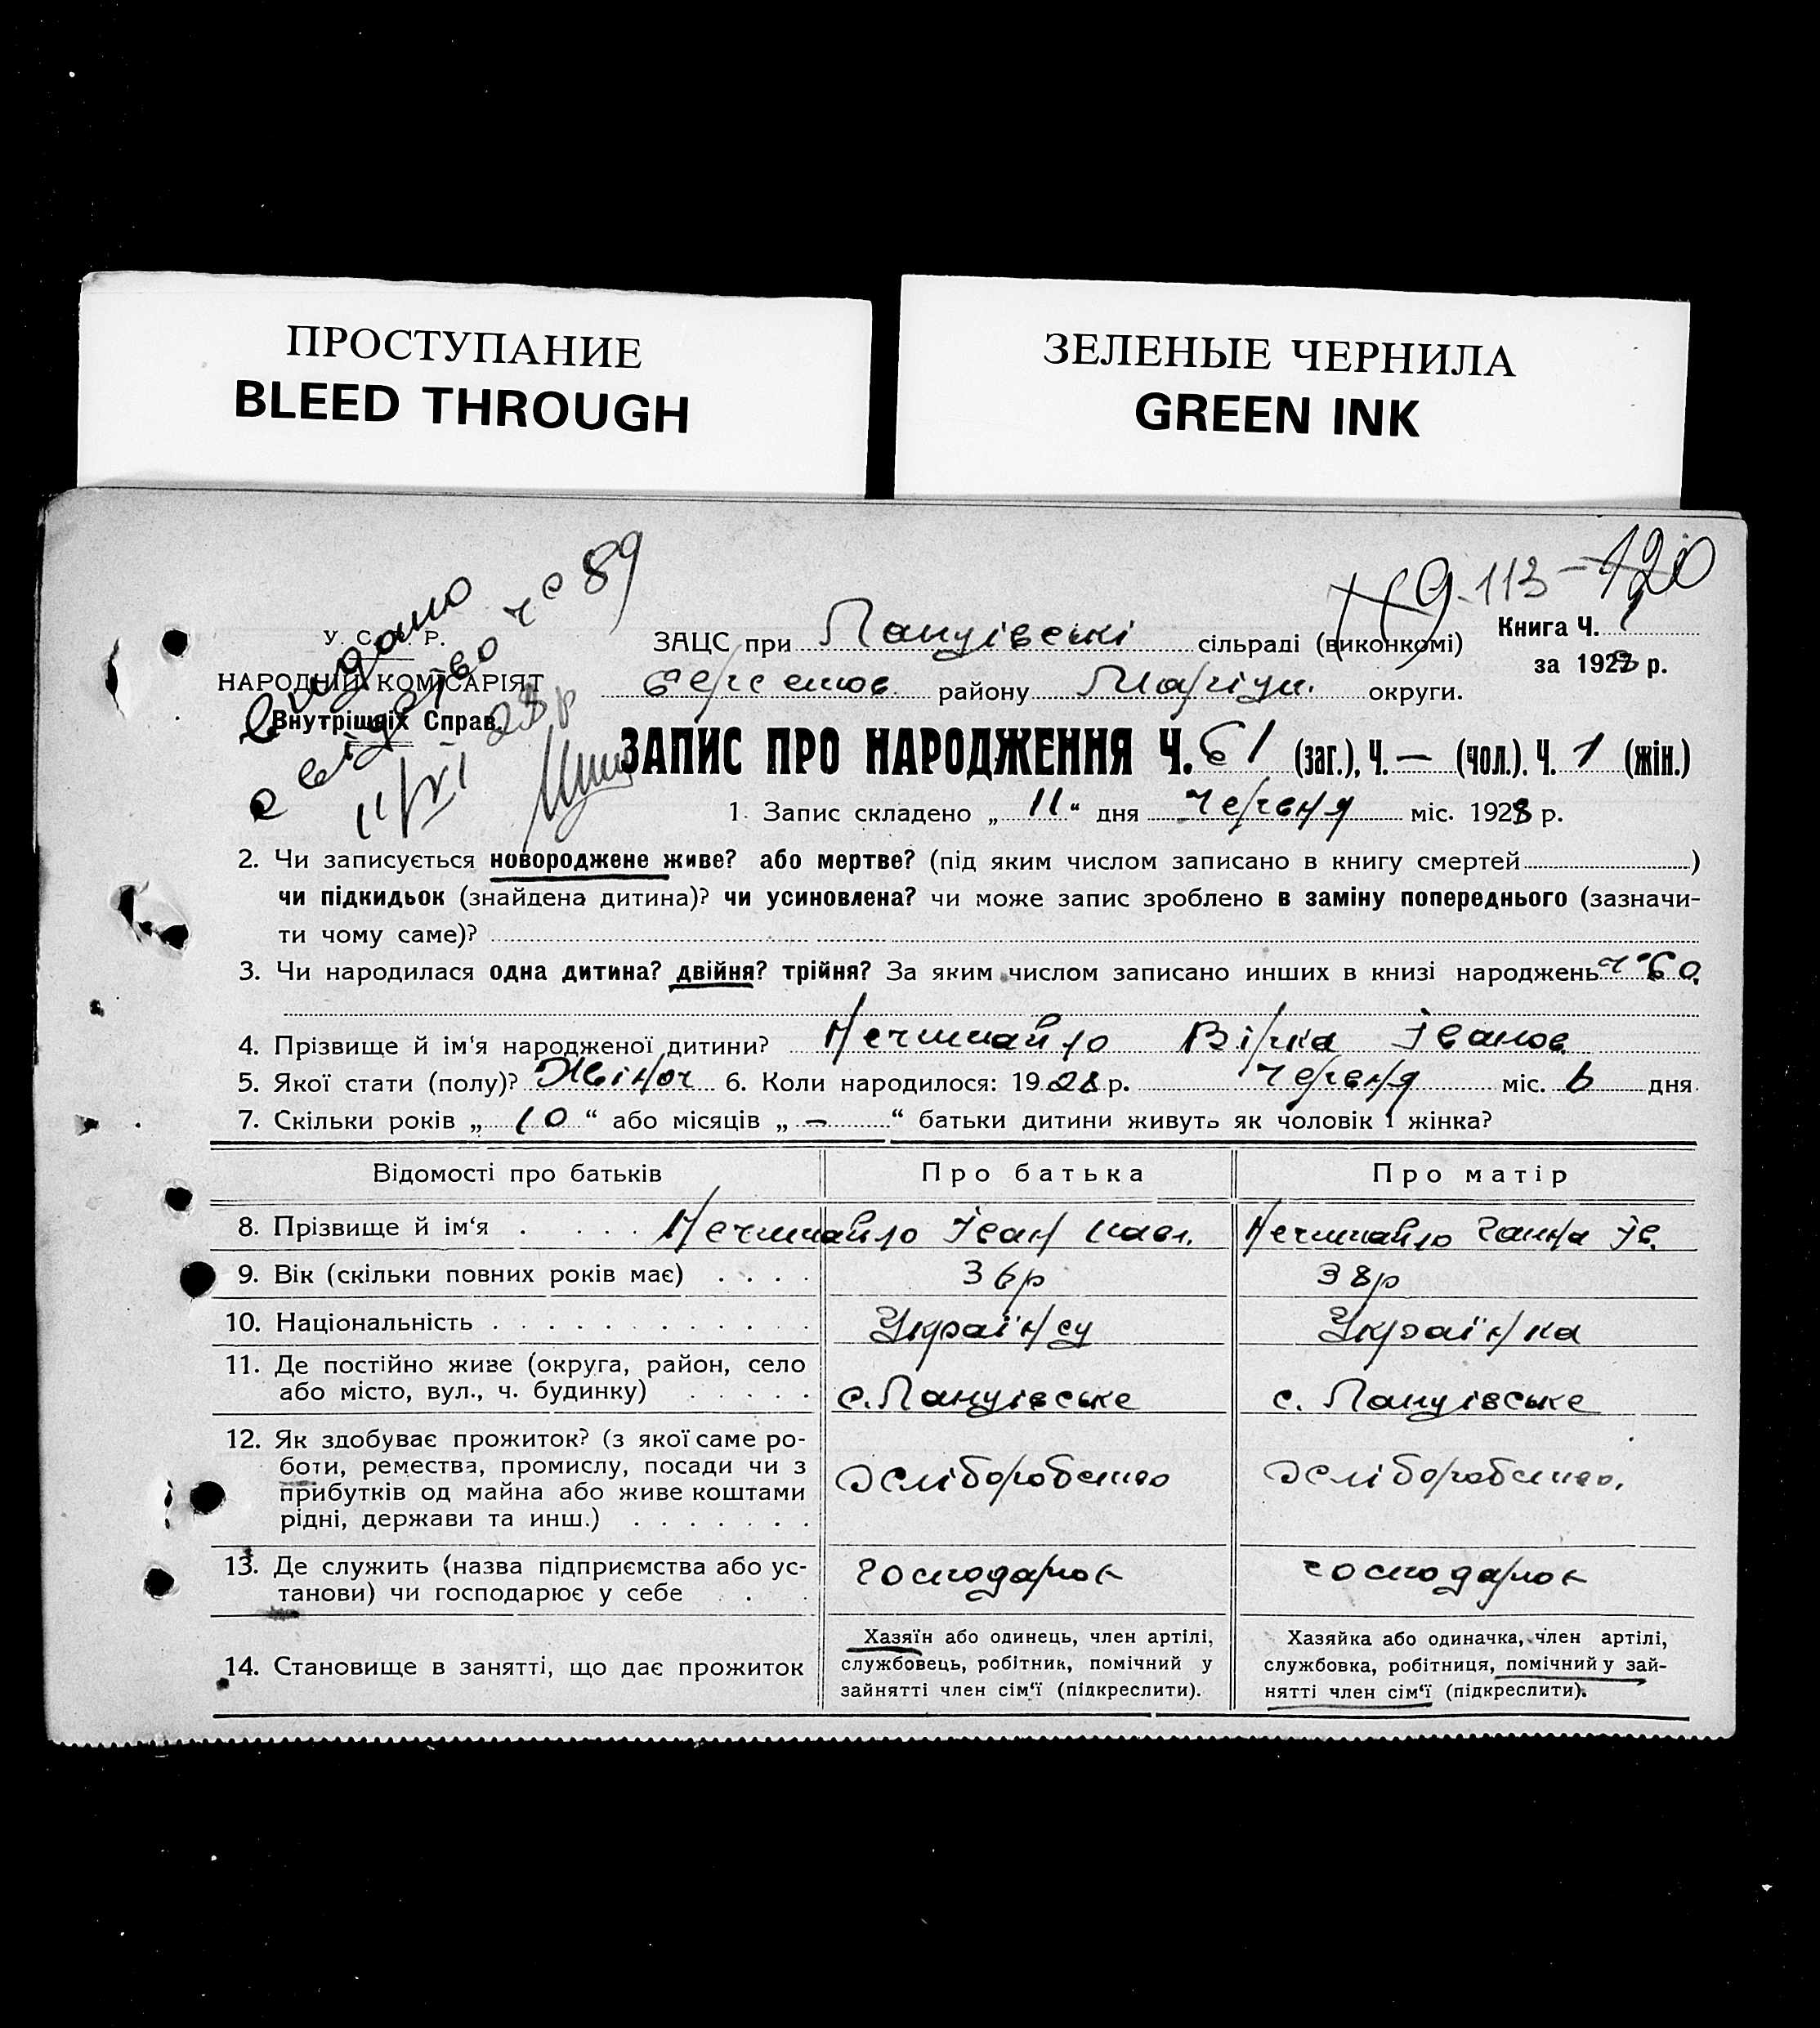 ПРОСТУПАНИЕ
BLEED THROUGH
ЗЕЛЕНЫЕ ЧЕРНИЛА
GREEN INK
119 113 – 120
видано
свідоцтво ч° 89
11/VI 28 р
У. С. Р. Р.
НАРОДНІЙ КОМІСАРІЯТ
Внутрішніх Справ.
Книга Ч. 1
за 1928 р.
ЗАЦС при сільраді (виконкомі)
району Маріуп. округи.
ЗАПИС ПРО НАРОДЖЕННЯ Ч. 61 (заг.), Ч. — (чол.). Ч. 1 (жін.)
1. Запис складено „ 11 “ дня Червня міс. 1928 р.
2. Чи записується новороджене живе? або мертве? (під яким числом записано в книгу смертей )
чи підкидьок (знайдена дитина)? чи усиновлена? чи може запис зроблено в заміну попереднього (зазначи-
ти чому саме)?
3. Чи народилася одна дитина? двійня? трійня? За яким числом записано инших в книзі народжень ч° 60.
4. Прізвище й ім‘я народженої дитини? Нечипайло Вірка Іванов.
5. Якої стати (полу)? Жіноч 6. Коли народилося: 1928 р. Червня міс. 6 дня.
7. Скільки років „ 10 “ або місяців „ — “ батьки дитини живуть як чоловік і жінка?
Відомості про батьків Про батька Про матір
8. Прізвище й ім‘я . . . . Нечипайло Іван Павл. Нечипайло Ганна Ів.
9. Вік (скільки повних років має) . . . . 36р 38р
10. Національність . . . . . . . . . . . . Українец Українка
11. Де постійно живе (округа, район, село
або місто, вул., ч. будинку) . . . . .
12. Як здобуває прожиток? (з якої саме ро-
боти, ремества, промислу, посади чи з
прибутків од майна або живе коштами
рідні, держави та инш.) . . . . . . .
хліборобство хліборобство.
13. Де служить (назва підприємства або ус-
танови) чи господарює у себе . .
господарює господарює
14. Становище в занятті, що дає прожиток
Хазяїн або одинець, член артілі,
службовець, робітник, помічний у
зайнятті член сім‘ї (підкреслити).
Хазяйка або одиначка, член артілі,
службовка, робітниця, помічний у зай-
нятті член сім‘ї (підкреслити).